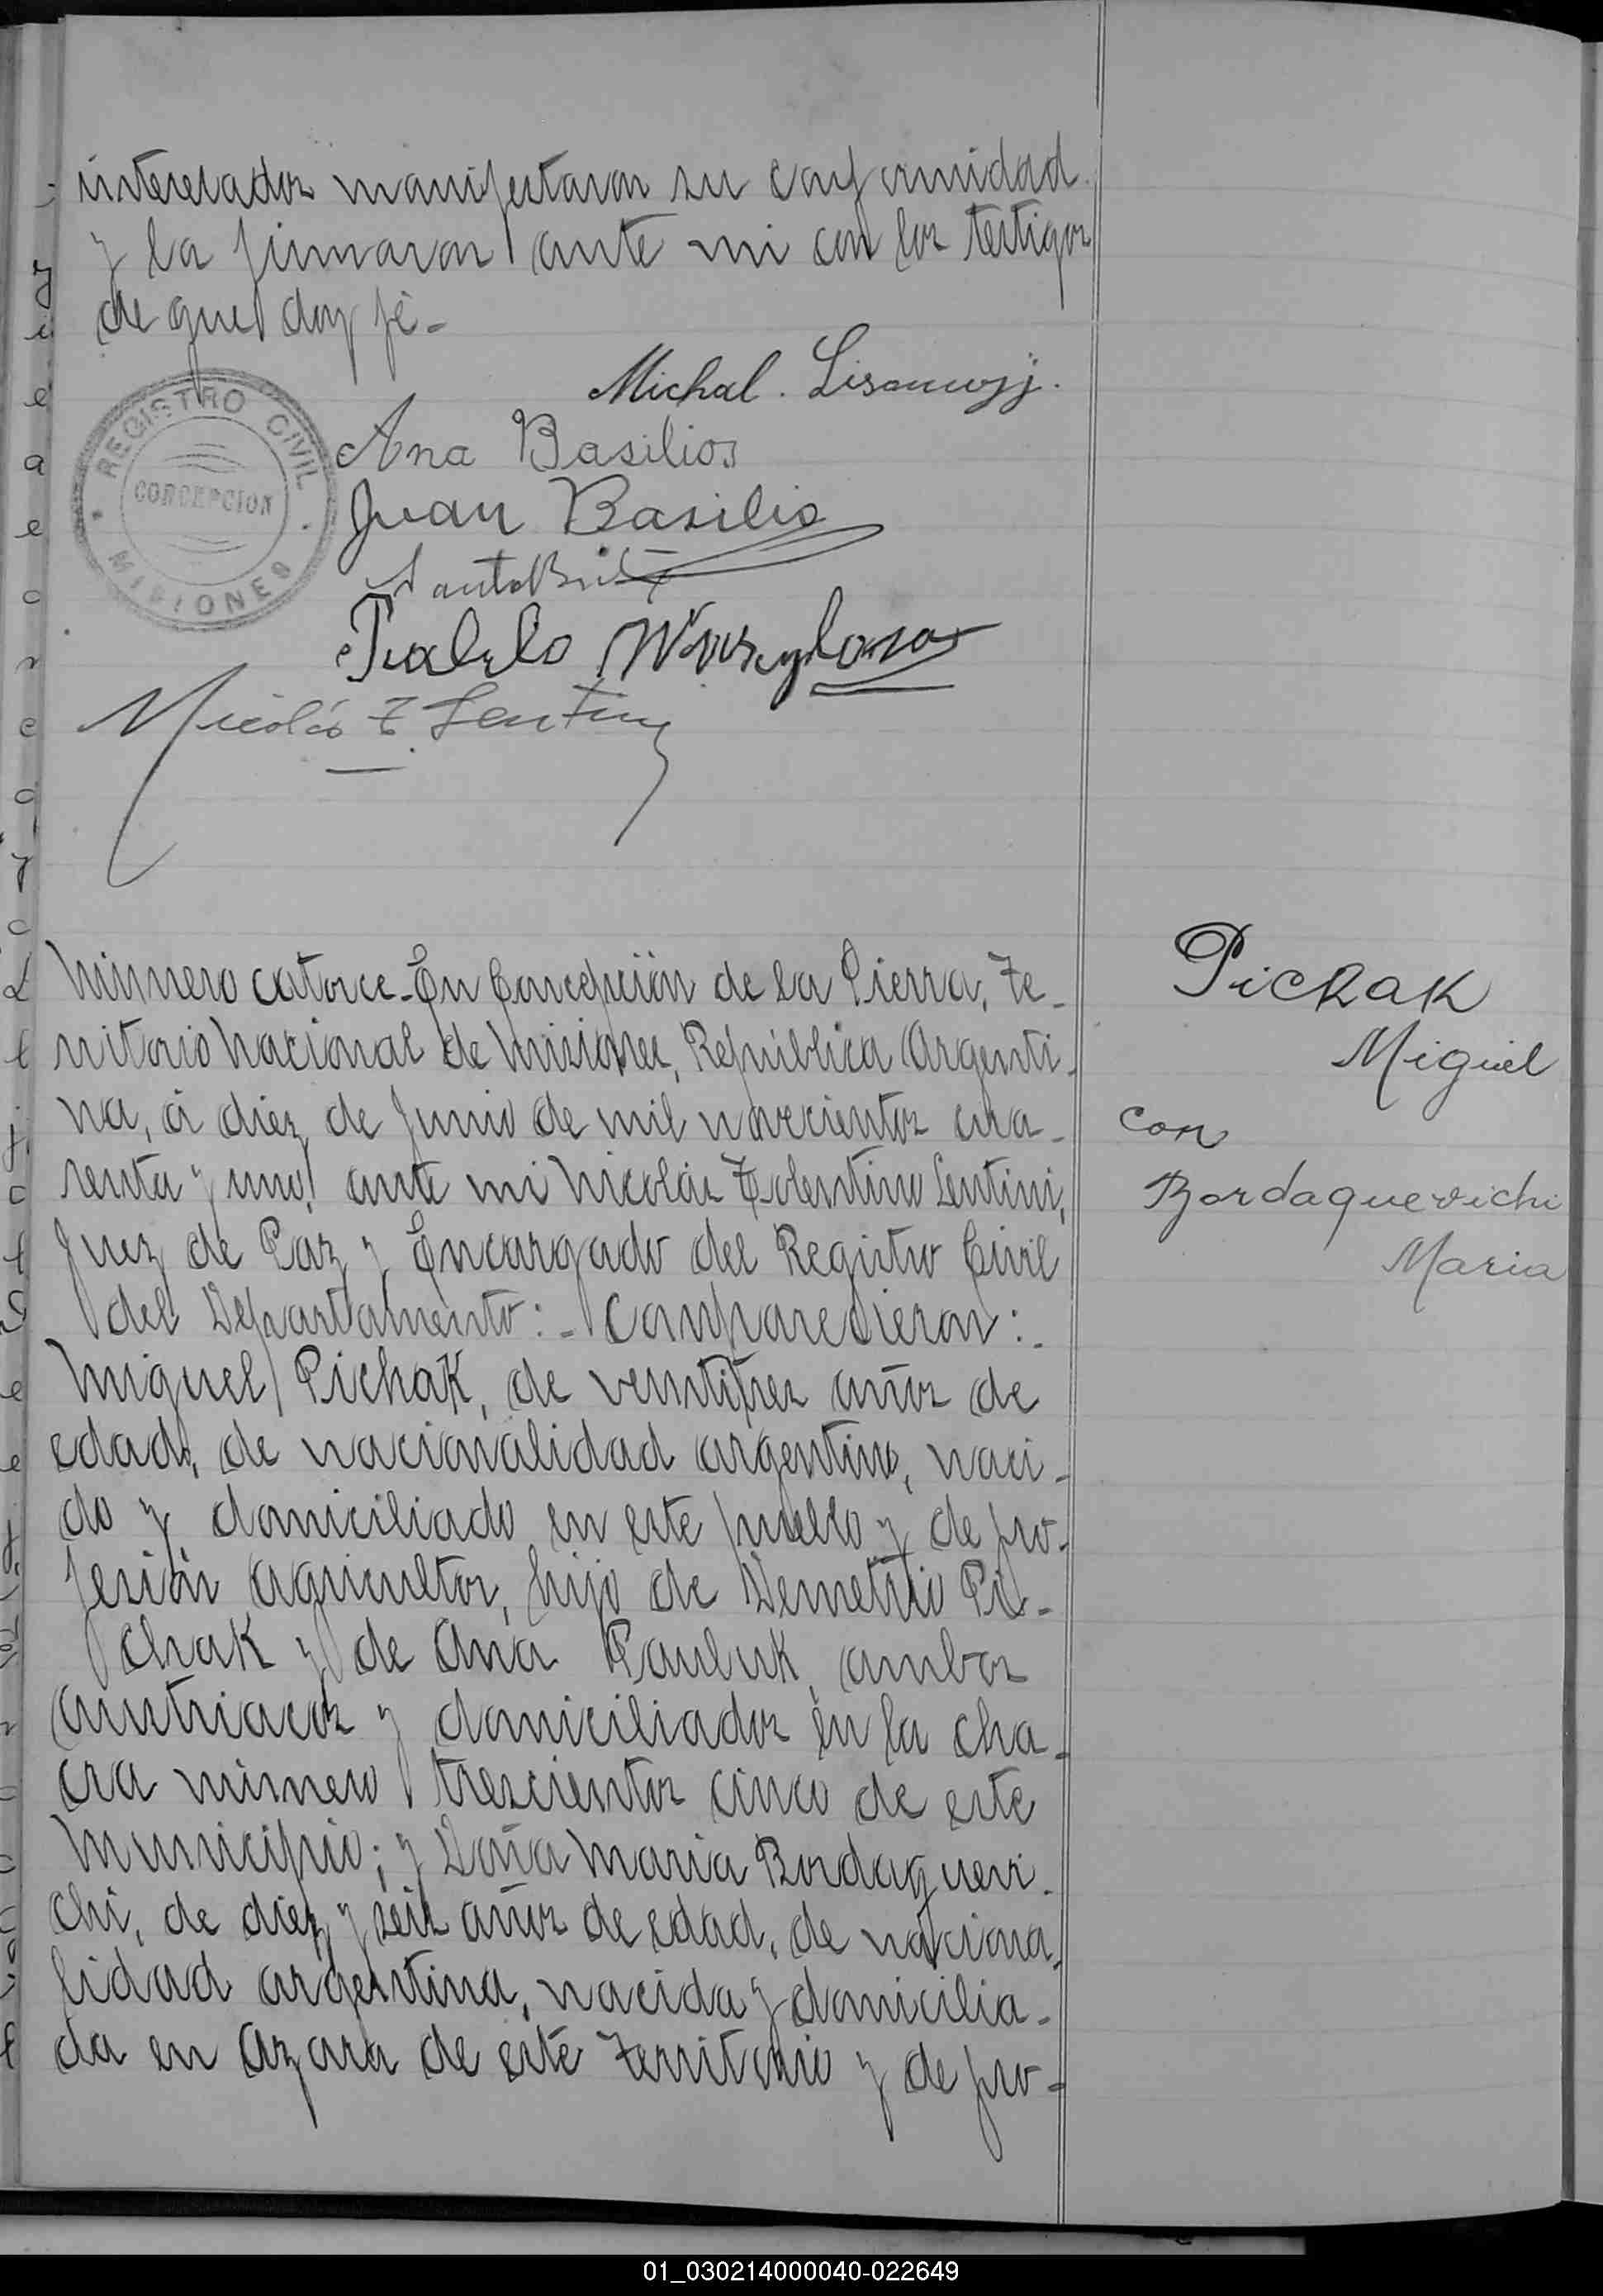 interesados manifestaron su conformidad
y la firmaron ante mi con los testigos
de que doy fé.-
Michal. Lisowyj.
REGISTRO CIVIL
CONCEPCION
MISIONES
Ana Basilios
Juan Basilio
Pablo
Nicolás T. Lentini
Número catorce.-En Concepción de la Sierra, Te-
rritorio Nacional de Misiones, República Argenti-
na, á diez de Junio de mil novecientos cua-
renta y uno, ante mi Nicolás Tolentino Lentini,
Juez de Paz y Encargado del Registro Civil
del Departamento:- Comparecieron:-
Miguel Pichak, de veintitres años de
edad, de nacionalidad argentino, naci-
do y domiciliado en este pueblo y de pro-
fesión agricultor, hijo de Demetrio Pi-
chak y de Ana Pauluk, ambos
austriacos y domiciliados en la cha-
cra número trescientos cinco de este
Municipio; y Doña Maria Bordaquevi-
chi, de diez y seis años de edad, de naciona-
lidad argentina, nacida y domicilia-
da en Azara de este Territorio y de pro-
Pichak
Miguel
con
Bordaquevichi
Maria
01_030214000040-022649